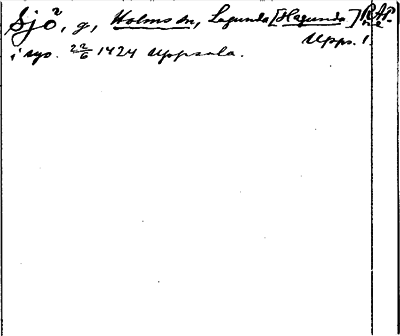 Sjö², g, Holms sn, Lagunda [Hagunda] RAP
Upps. 1.
i syo. 22/6 1424 Uppsala.